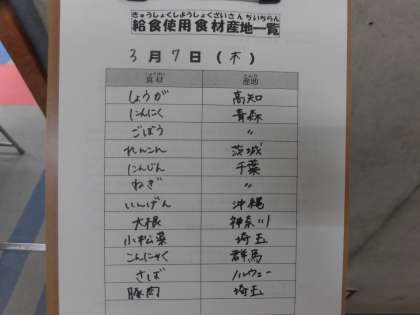 きゅうしょくしようしょくざいさんちいちらん
給食使用食材産地一覧
3月7日(木)
食材 産地
しょうが 高知
にんにく 青森
ごぼう 〃
れんこん 茨城
にんじん 千葉
ねぎ 〃
いんげん 沖縄
大根 神奈川
小松菜 埼玉
こんにゃく 群馬
さば ノルウェー
豚肉 埼玉